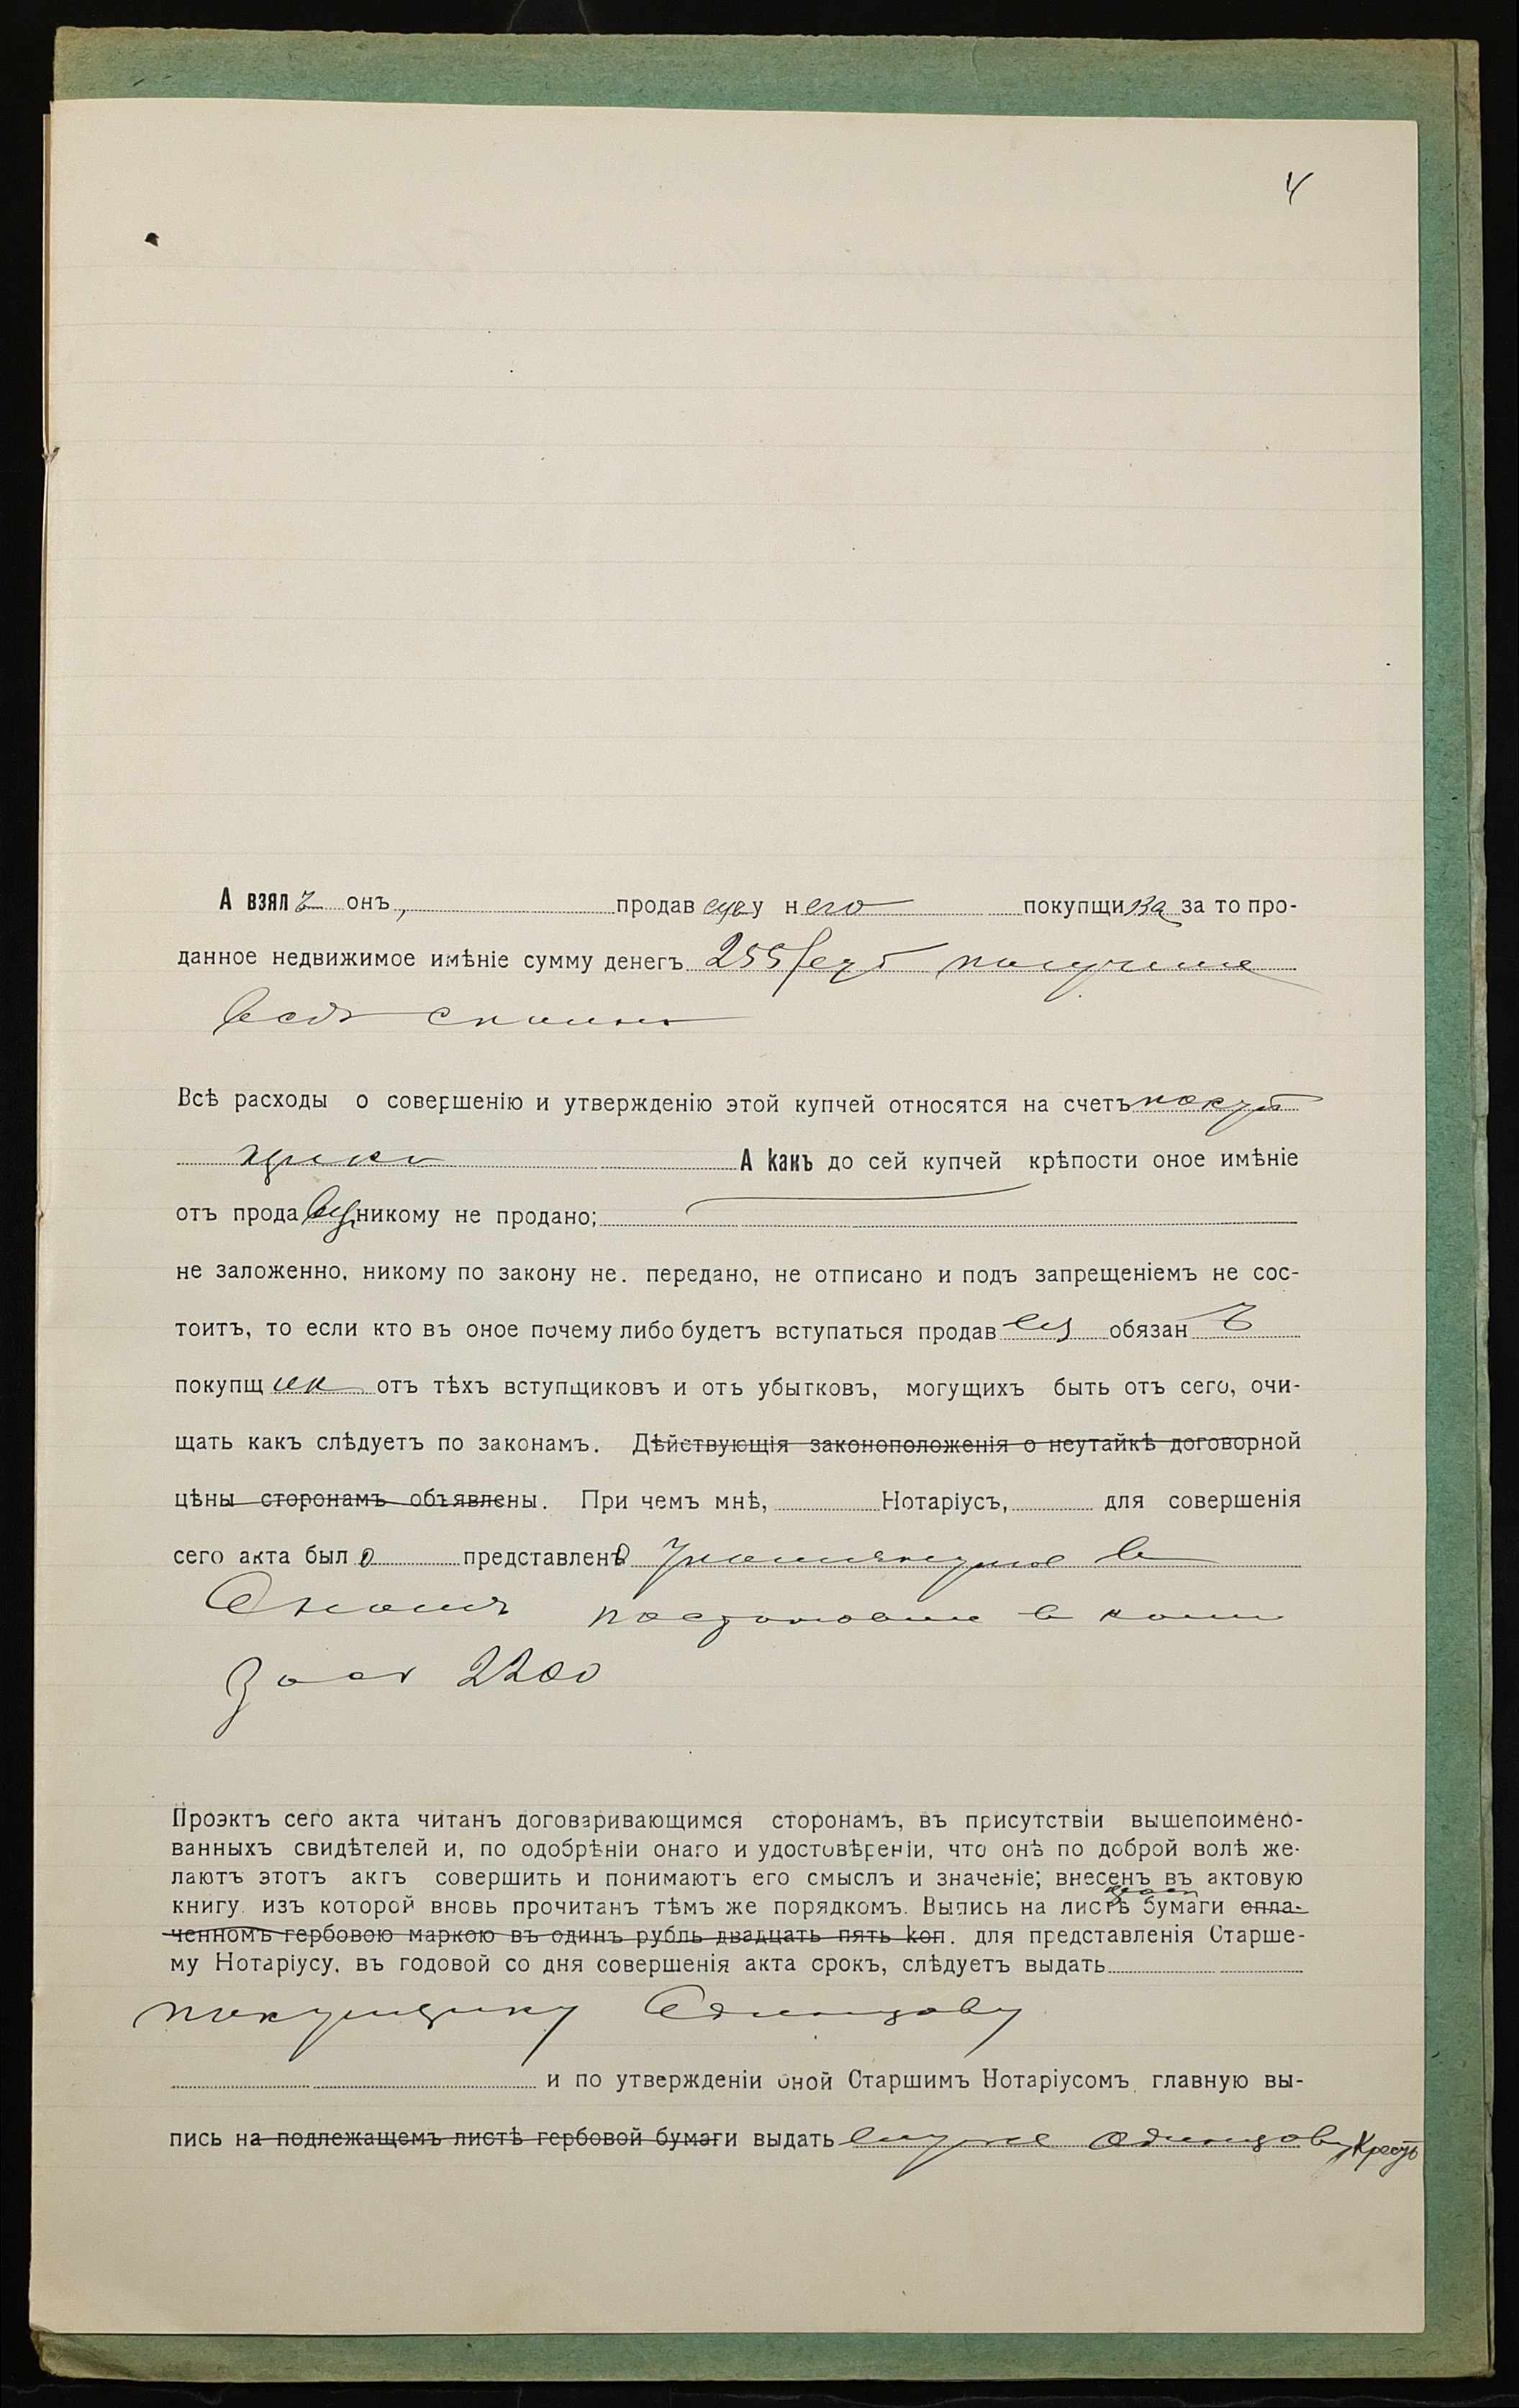 4
А взялъ онъ, продавецъ у него покупщика за то про-
данное недвижимое имѣніе сумму денегъ 255 руб получилъ
всѣ сполна
Всѣ расходы о совершенію и утвержденію этой купчей относятся на счетъ покуп
щика А какъ до сей купчей крѣпости оное имѣніе
отъ продавца никому не продано;
не заложенно, никому по закону не. передано, не отписано и подъ запрещеніемъ не сос-
тоитъ, то если кто въ оное почему либо будетъ вступаться продавец обязанъ
покупщик отъ тѣхъ вступщиковъ и отъ убытковъ, могущихъ быть отъ сего, очи-
щать какъ слѣдуетъ по законамъ. Дѣйствующія законоположенія о неутайкѣ договорной
цѣны сторонамъ объявлены. При чемъ мнѣ, Нотаріусъ, для совершенія
сего акта было представлено в
в
2200
Проэктъ сего акта читанъ договаривающимся сторонамъ, въ присутствіи вышепоимено-
ванныхъ свидѣтелей и, по одобрѣніи онаго и удостовѣреніи, что онѣ по доброй волѣ же-
лаютъ этотъ актъ совершить и понимаютъ его смыслъ и значеніе; внесенъ въ актовую
книгу. изъ которой вновь прочитанъ тѣмъ же порядкомъ. Выпись на листѣ бумаги опла-
ченномъ гербовою маркою въ одинъ рубль двадцать пять коп. для представленія Старше-
му Нотаріусу, въ годовой со дня совершенія акта срокъ, слѣдуетъ выдать
покупщику Одинцову
и по утвержденіи оной Старшимъ Нотаріусомъ, главную вы-
пись на подлежащемъ листѣ гербовой бумаги выдать ему же Одинцову